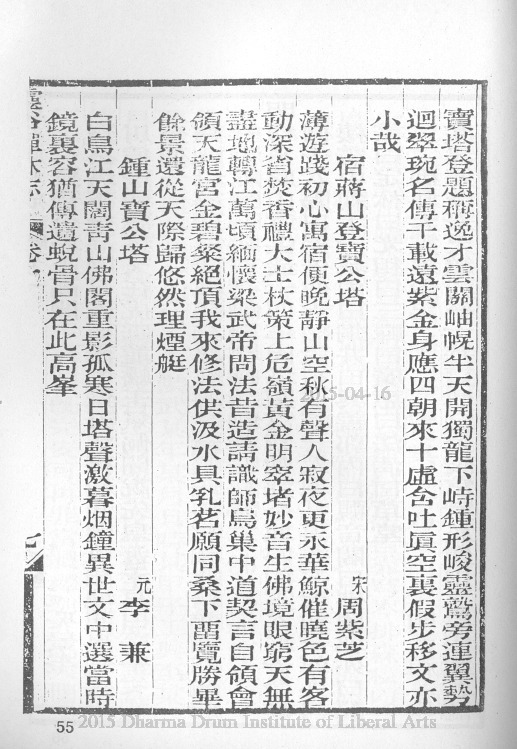 寶塔登題稱逸才雲關岫幌半天開獨龍下峙鍾形峻靈鷲旁連翼勢
迴翠琬名傳千載遠紫金身應四朝來十虛含吐眞空裏假步移文亦
小哉
宿蔣山登寶公塔
宋 周紫芝
薄遊踐初心寓宿便晚靜山空秋有聲人寂夜更永華鯨催曉色有客
動深省焚香禮大士杖策上危嶺黃金明窣堵妙音生佛境眼窮天無
盡地轉江萬頃緬懷梁武帝問法昔造請識師鳥巢中道契言自領會
領天龍宮金碧粲絕頂我來修法供汲水具乳茗願同桑下畱覽勝畢
餘景還從天際歸悠然理煙艇
鍾山寶公塔
元 李兼
白鳥江天闊青山佛閣重影孤寒日塔聲激暮烟鐘異世文中選當時
鏡裏容猶傳遺蛻骨只在此高峯
靈谷禪林志
卷
55
2015-04-16
2015 Dharma Drum Institute of Liberal Arts